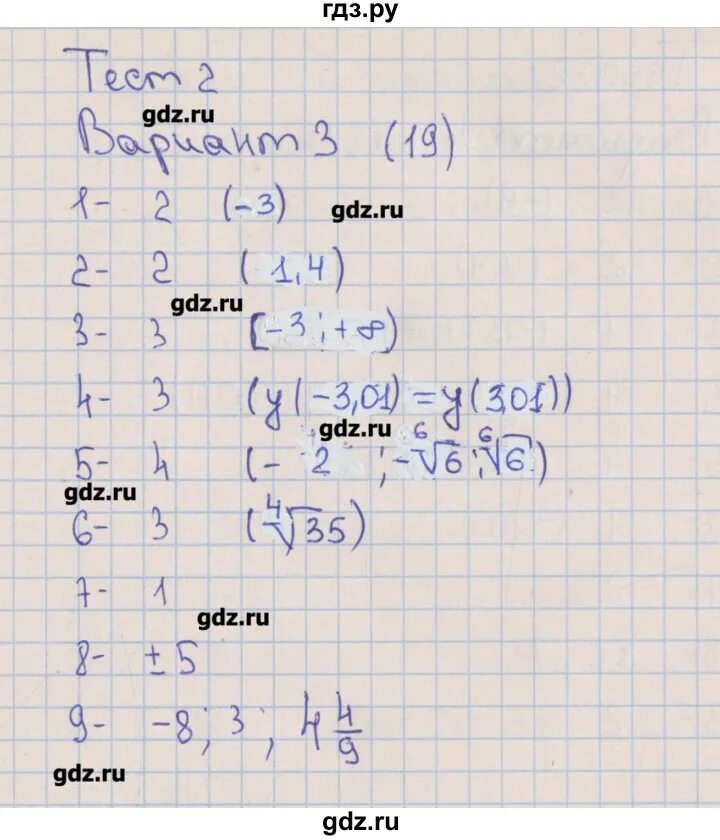 гдз.ру
Тест 2
gdz.ru
Вариант 3 (19)
1- 2 (-3)
gdz.ru
2- 2 (1,4)
gdz.ru
3- 3 [-3; +∞)
4- 3 (y(-3,01) = y(3,01))
gdz.ru
5- 4 (- 2 ; -⁶√6 ; ⁶√6)
gdz.ru
6- 3 (⁴√35)
7- 1
gdz.ru
8- ±5
9- -8; 3; 4 4/9
gdz.ru
gdz.ru